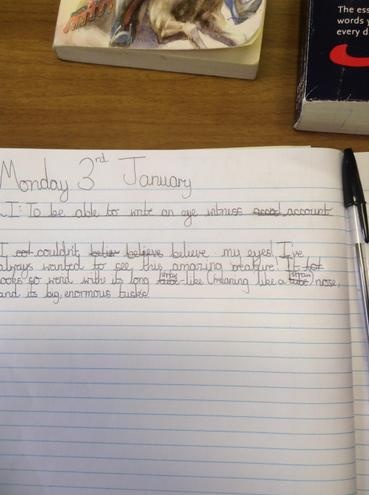 The ess
words y
every d
Monday 3rd January
L.I: To be able to write an eye witness account
I couldn't believe my eyes! I've
always wanted to see this amazing creature! It
looks so weird with its long -like (meaning like a ) nose,
and its big, enormous tusks.